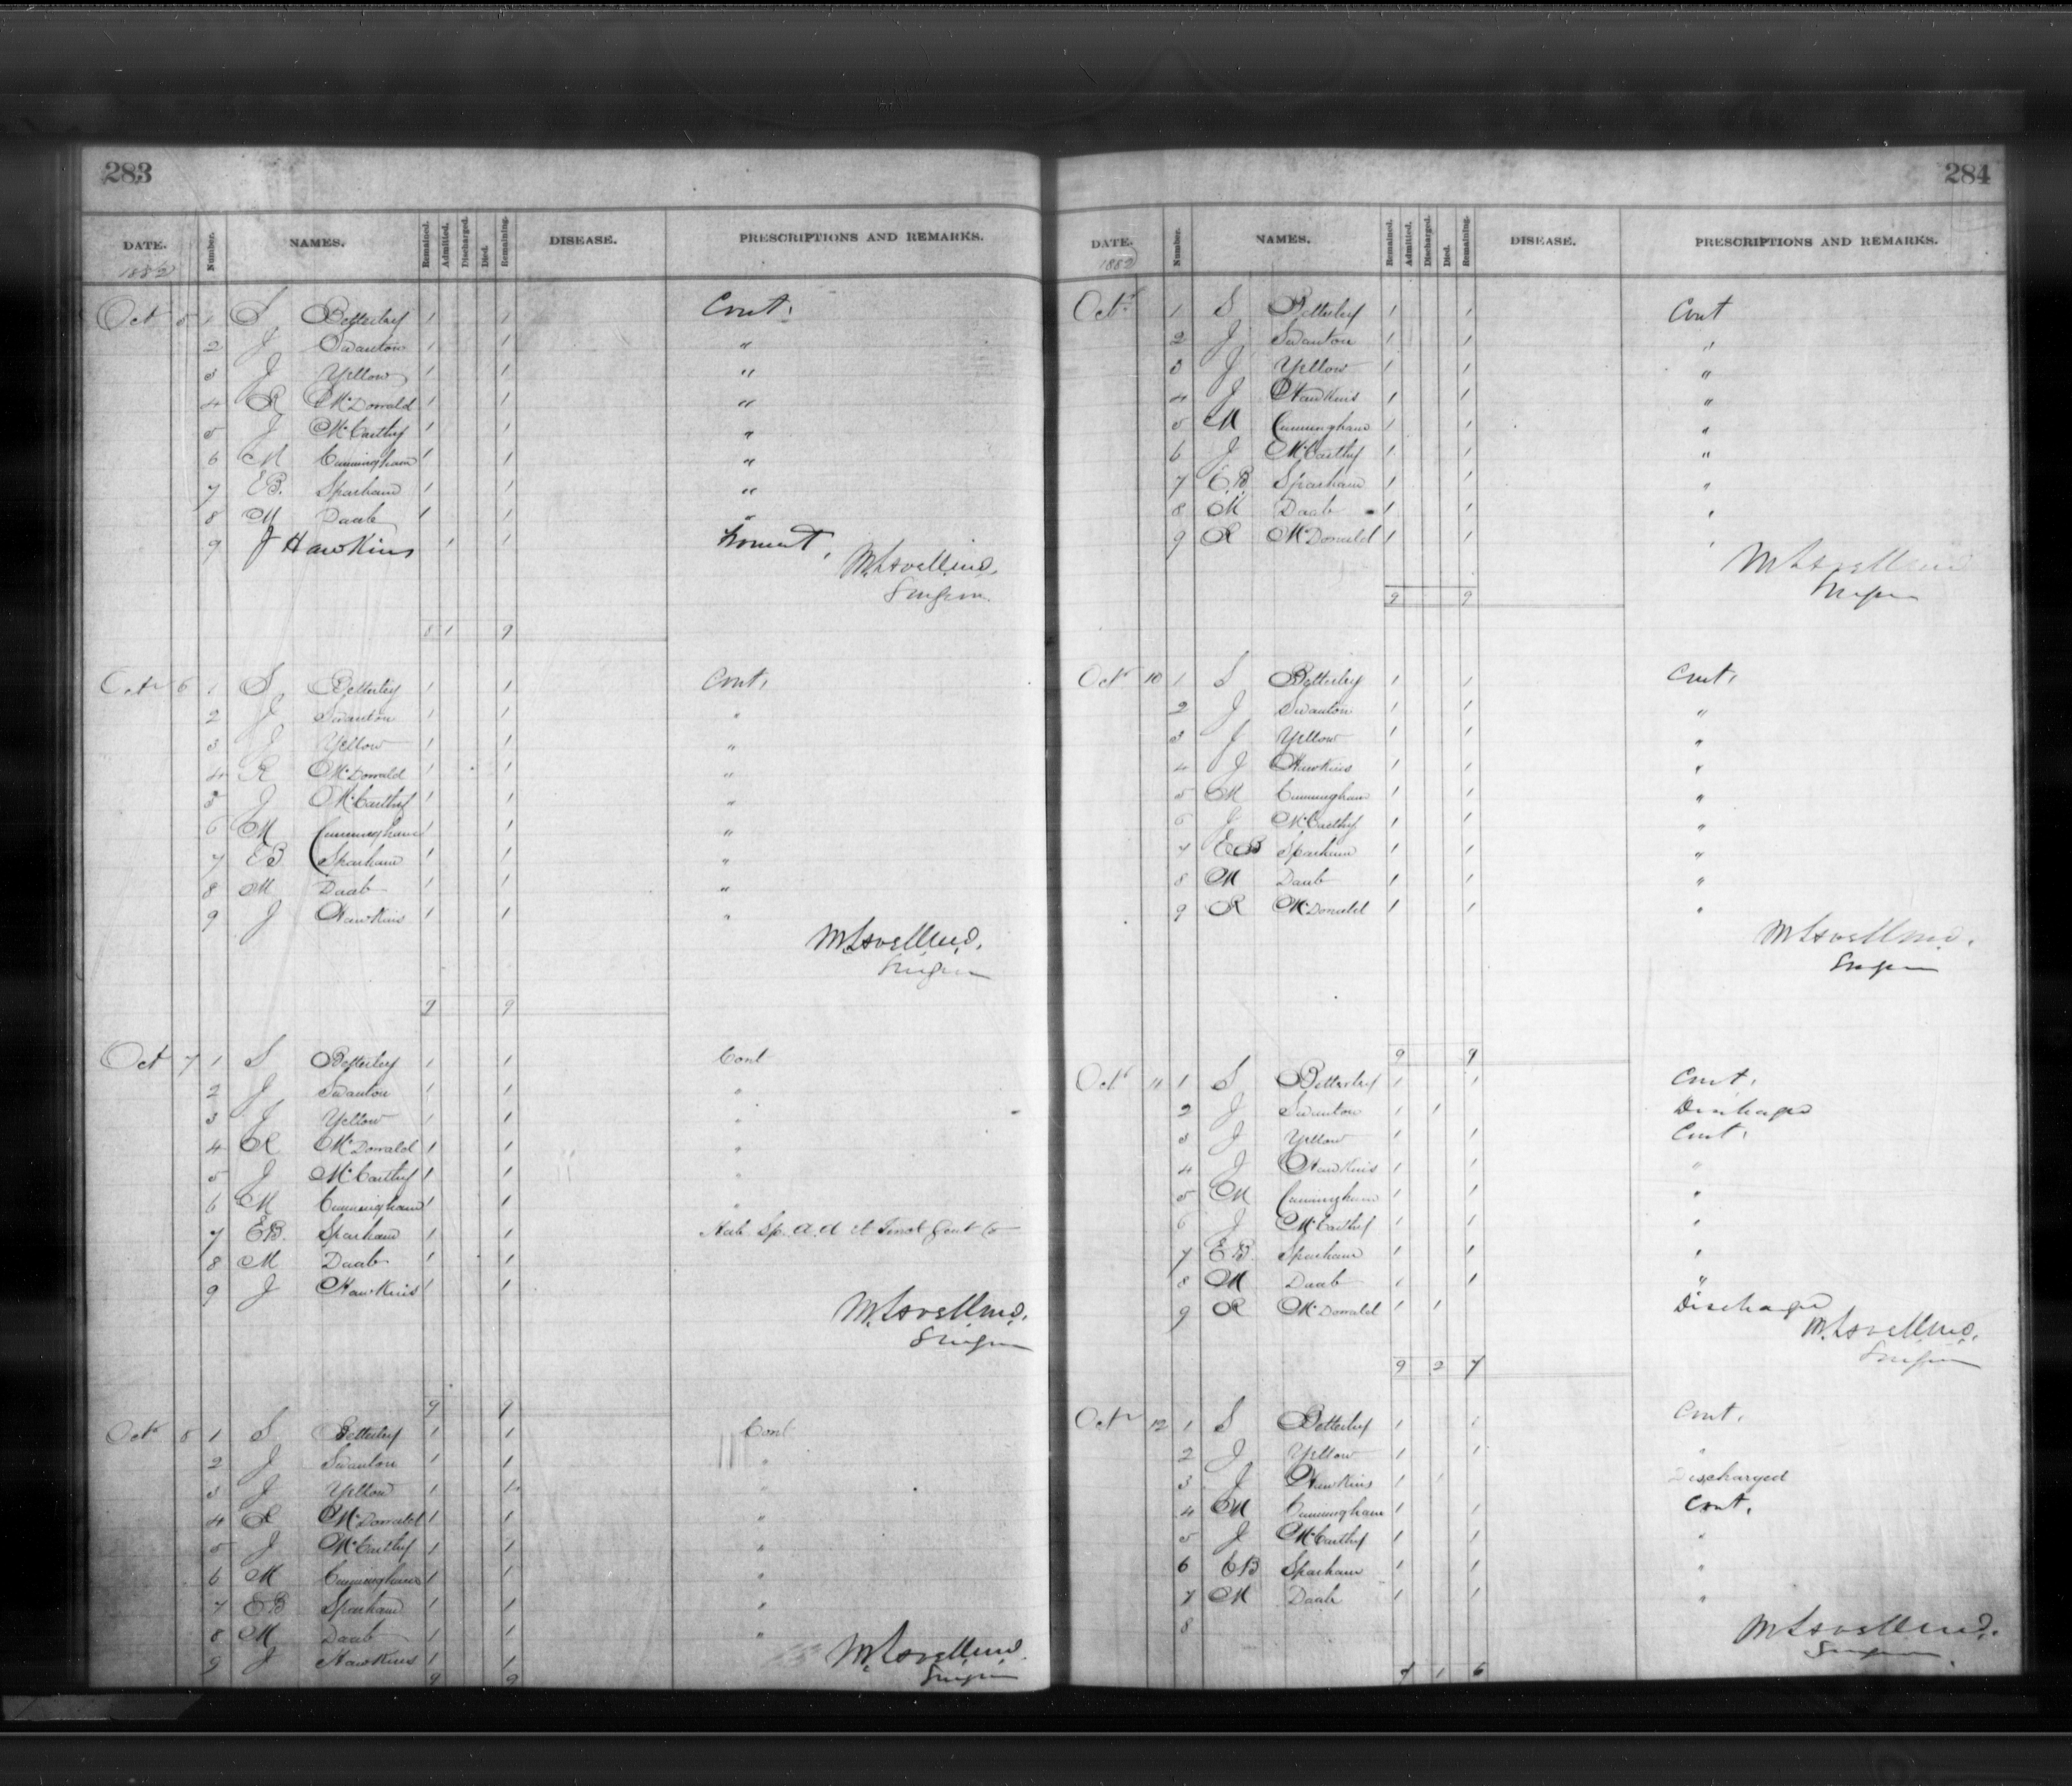 283
DATE. Number. NAMES. Remained. Admitted. Discharged. Died. Remaining. DISEASE. PRESCRIPTIONS AND REMARKS.
1882
Oct 5 1 S Betterley 1 1 Cont.
2 J Swanton 1 1 "
3 J Yellow 1 1 "
4 R McDonald 1 1 "
5 J McCarthy 1 1 "
6 M Cunningham 1 1 "
7 E B. Sparham 1 1 "
8 M Daab 1 1 "
9 J Hawkins 1 1
M. Lovell M.D.
Surgeon
8 1 9
Oct 6 1 S Betterley 1 1 Cont.
2 J Swanton 1 1 "
3 J Yellow 1 1 "
4 R McDonald 1 1 "
5 J McCarthy 1 1 "
6 M Cunningham 1 1 "
7 E B Sparham 1 1 "
8 M Daab 1 1 "
9 J Hawkins 1 1 "
M. Lovell M.D.
Surgeon
9 9
Oct 7 1 S Betterley 1 1 Cont
2 J Swanton 1 1 "
3 J Yellow 1 1 "
4 R McDonald 1 1 "
5 J McCarthy 1 1 "
6 M Cunningham 1 1 "
7 E B. Sparham 1 1 Sp.
8 M Daab 1 1
9 J Hawkins 1 1
M. Lovell M.D.
Surgeon
9 9
Oct 8 1 S Betterley 1 1 Cont
2 J Swanton 1 1 "
3 J Yellow 1 1 "
4 R McDonald 1 1 "
5 J McCarthy 1 1 "
6 M Cunningham 1 1 "
7 E B Sparham 1 1 "
8 M Daab 1 1 "
9 J Hawkins 1 1
M. Lovell M.D.
Surgeon
9 9
284
DATE. Number. NAMES. Remained. Admitted. Discharged. Died. Remaining. DISEASE. PRESCRIPTIONS AND REMARKS.
1882
Oct 1 S Betterley 1 1 Cont
2 J Swanton 1 1 "
3 J Yellow 1 1 "
4 J Hawkins 1 1 "
5 M Cunningham 1 1 "
6 J McCarthy 1 1 "
7 E.B. Sparham 1 1 "
8 M Daab 1 1 "
9 R McDonald 1 1 "
M Lovell M.D.
Surgeon
9 9
Oct 10 1 S Betterley 1 1 Cont.
2 J Swanton 1 1 "
3 J Yellow 1 1 "
4 J Hawkins 1 1 "
5 M Cunningham 1 1 "
6 J McCarthy 1 1 "
7 E B Sparham 1 1 "
8 M Daab 1 1 "
9 R McDonald 1 1 "
M Lovell M.D.
Surgeon
9 9
Oct 11 1 S Betterley 1 1 Cont.
2 J Swanton 1 1 Discharged
3 J Yellow 1 1 Cont.
4 J Hawkins 1 1 "
5 M Cunningham 1 1 "
6 J McCarthy 1 1 "
7 E B Sparham 1 1 "
8 M Daab 1 1 "
9 R McDonald 1 1 Discharged
M. Lovell M.D.
Surgeon
9 2 7
Oct 12 1 S Betterley 1 1 Cont.
2 J Yellow 1 1 "
3 J Hawkins 1 1 Discharged
4 M Cunningham 1 1 Cont.
5 J McCarthy 1 1 "
6 E B Sparham 1 1 "
7 M Daab 1 1 "
8
M Lovell M.D.
Surgeon.
7 1 6